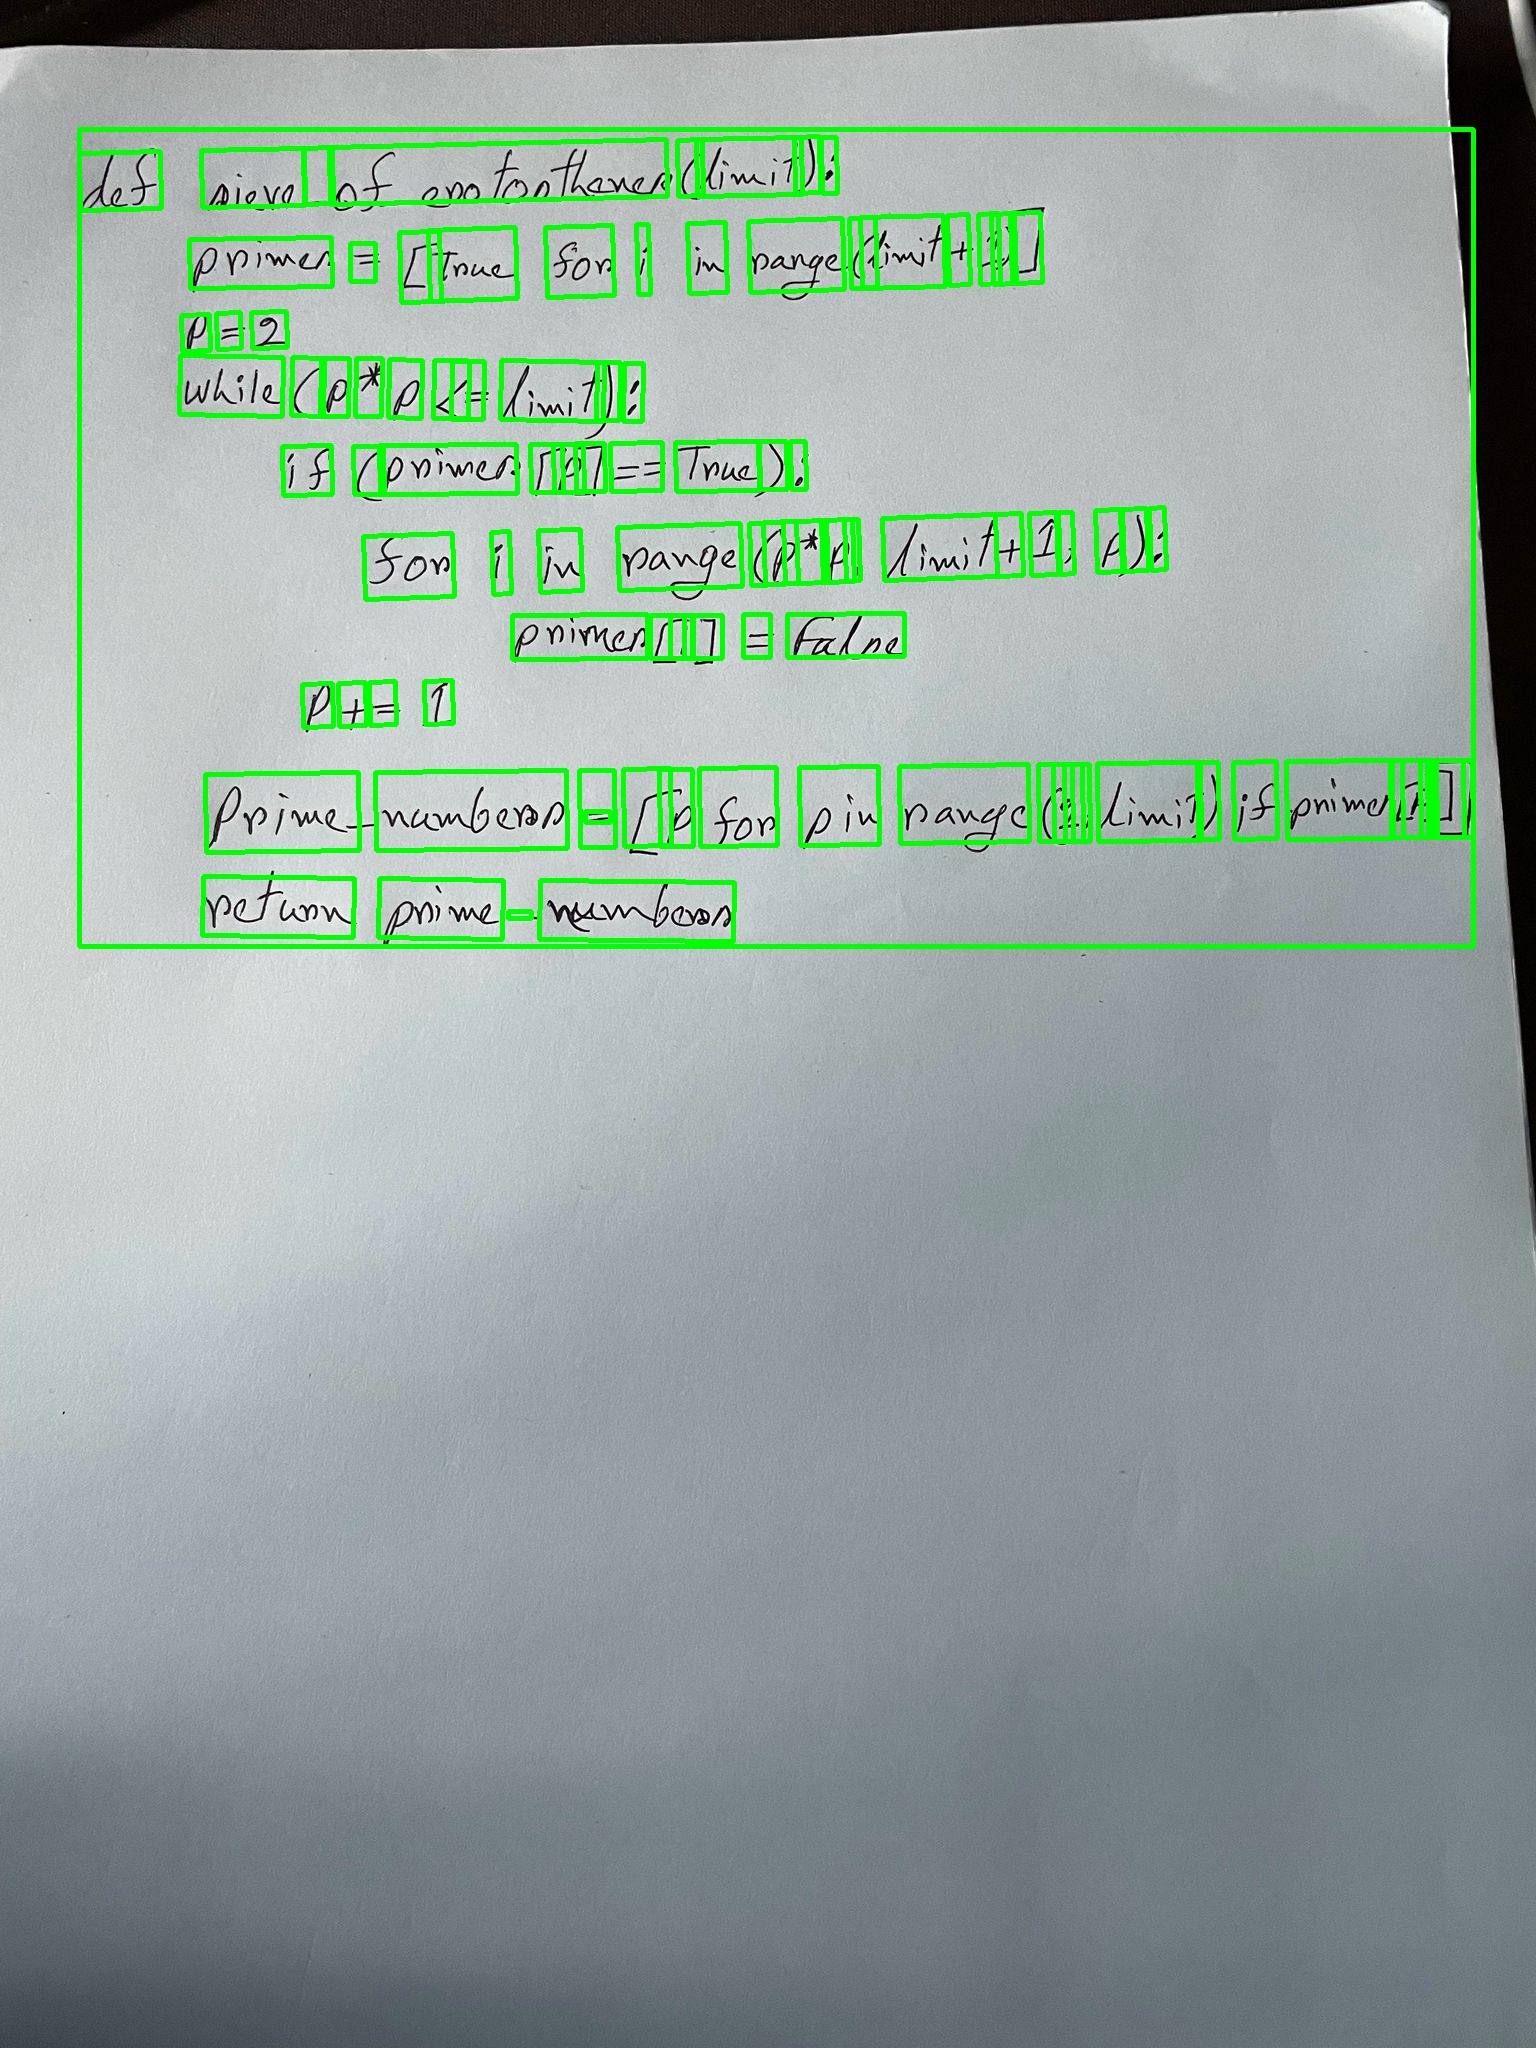 def sieve_of_eratosthenes(limit):
primes = [True for i in range(limit+1)]
p = 2
while (p*p <= limit):
if (primes[p] == True):
for i in range(p*p, limit+1, p):
primes[i] = False
p += 1
Prime_numbers = [p for p in range(2, limit) if primes[p]]
return prime_numbers